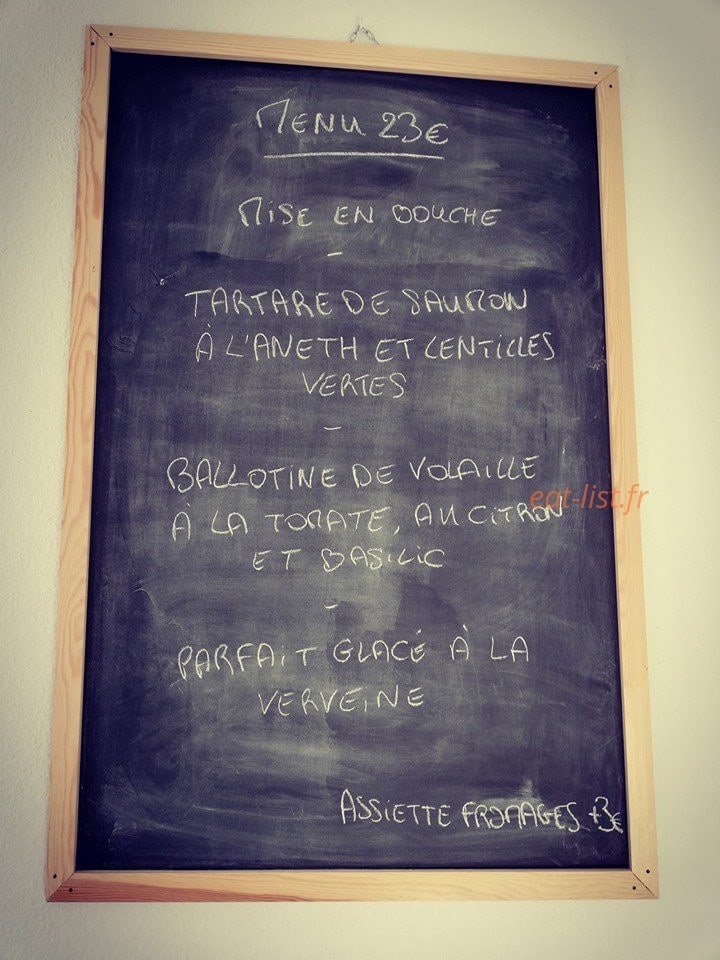 MENU 23€
MISE EN BOUCHE
-
TARTARE DE SAUMON
À L'ANETH ET LENTILLES
VERTES
-
BALLOTINE DE VOLAILLE
À LA TOMATE, AU CITRON
ET BASILIC
-
PARFAIT GLACÉ À LA
VERVEINE
ASSIETTE FROMAGES +3€
eat-list.fr